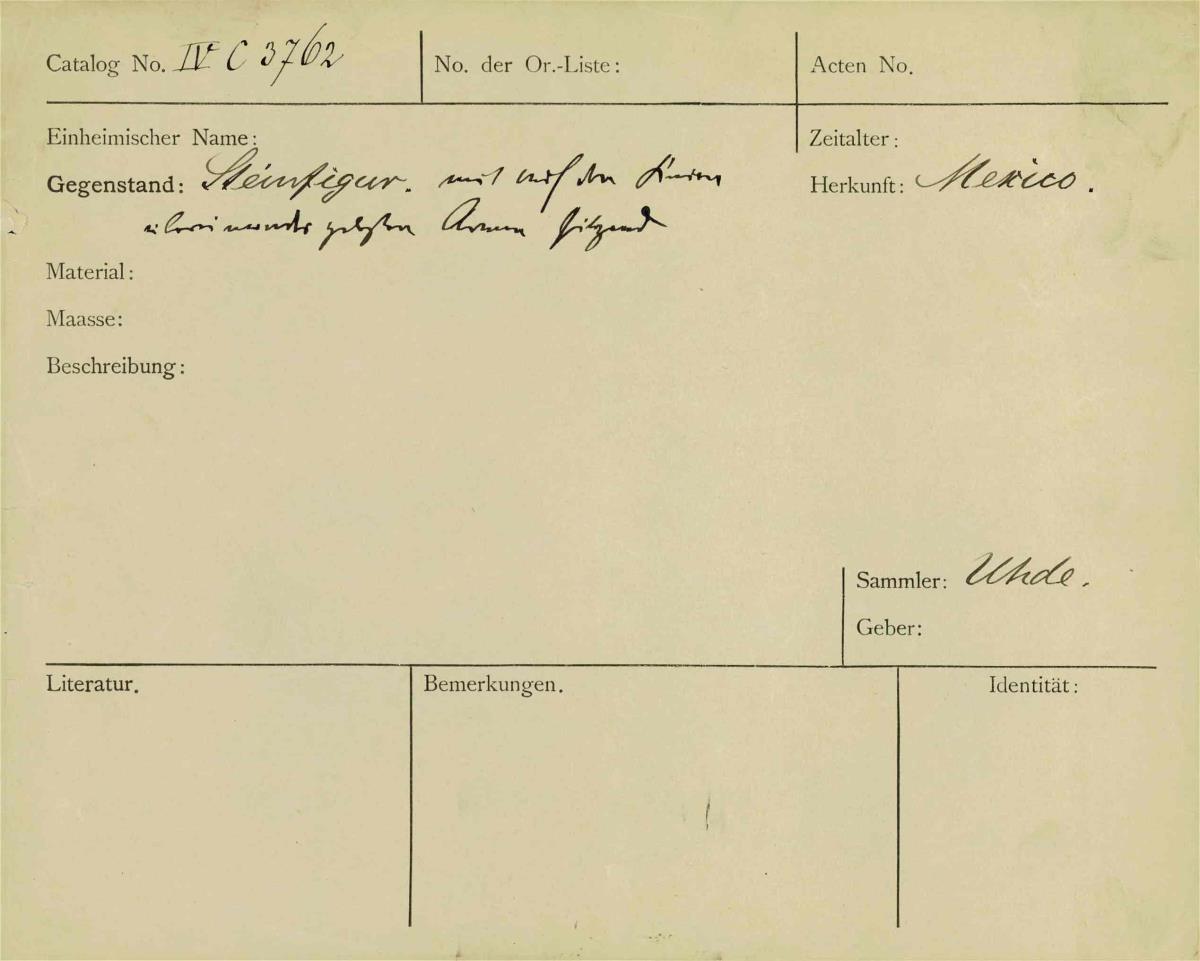 Catalog No. IV C 3762
No. der Or.-Liste:
Acten No.
Einheimischer Name:
Zeitalter:
Gegenstand: Steinfigur. mit auf den Knieen
übereinander gelegten Armen sitzend
Herkunft: Mexico.
Material:
Maasse:
Beschreibung:
Sammler: Uhde.
Geber:
Literatur.
Bemerkungen.
Identität: